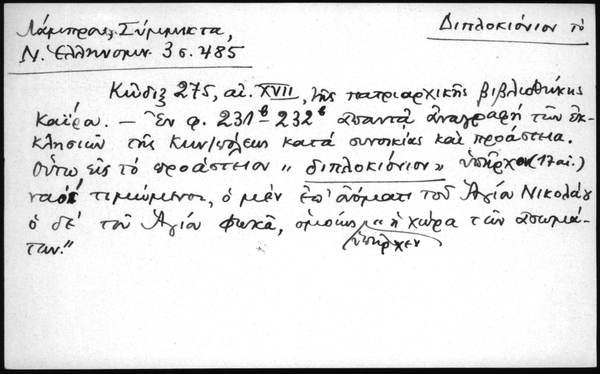 Λάμπρου, Σύμμικτα,
Ν. Ἑλληνομν. 3 σ. 485
Διπλοκιόνιον τὸ
Κῶδιξ 275, αἰ. XVII, τῆς πατριαρχικῆς βιβλιοθήκης
Καΐρου. — Ἐν φ. 231β–232β ἀπαντᾷ ἀναγραφὴ τῶν ἐκ-
κλησιῶν τῆς Κων/πόλεως κατὰ συνοικίας καὶ προάστεια.
Οὕτω, εἰς τὸ προάστειον « διπλοκιόνιον » ὑπῆρχον (17 αἰ.)
ναοὶ τιμώμενοι, ὁ μὲν ἐπ' ὀνόματι τοῦ Ἁγίου Νικολάου
ὁ δὲ τοῦ Ἁγίου Φωκᾶ, ὁμοίως ὑπῆρχεν « ἡ χώρα τῶν Ἀσωμά-
των."